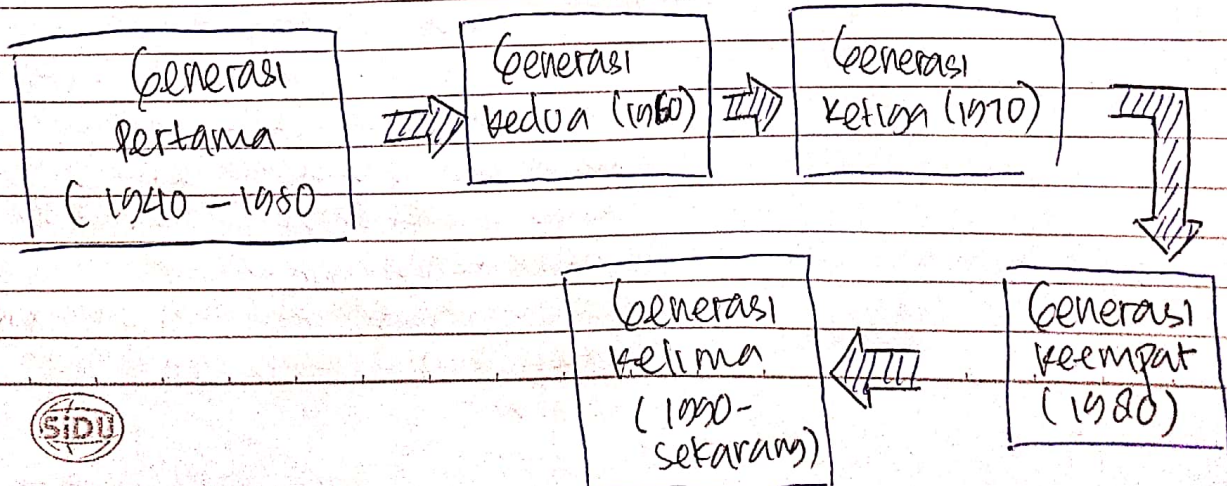 Generasi
Pertama
(1940 - 1950
Generasi
kedua (1960)
Generasi
ketiga (1970)
Generasi
keempat
(1980)
Generasi
kelima
(1990-
sekarang)
SiDU